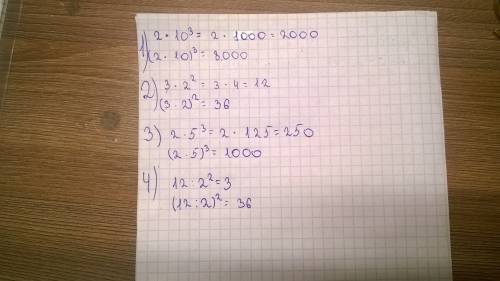 1) 2 · 10³ = 2 · 1000 = 2000
(2 · 10)³ = 8000
2) 3 · 2² = 3 · 4 = 12
(3 · 2)² = 36
3) 2 · 5³ = 2 · 125 = 250
(2 · 5)³ = 1000
4) 12 : 2² = 3
(12 : 2)² = 36